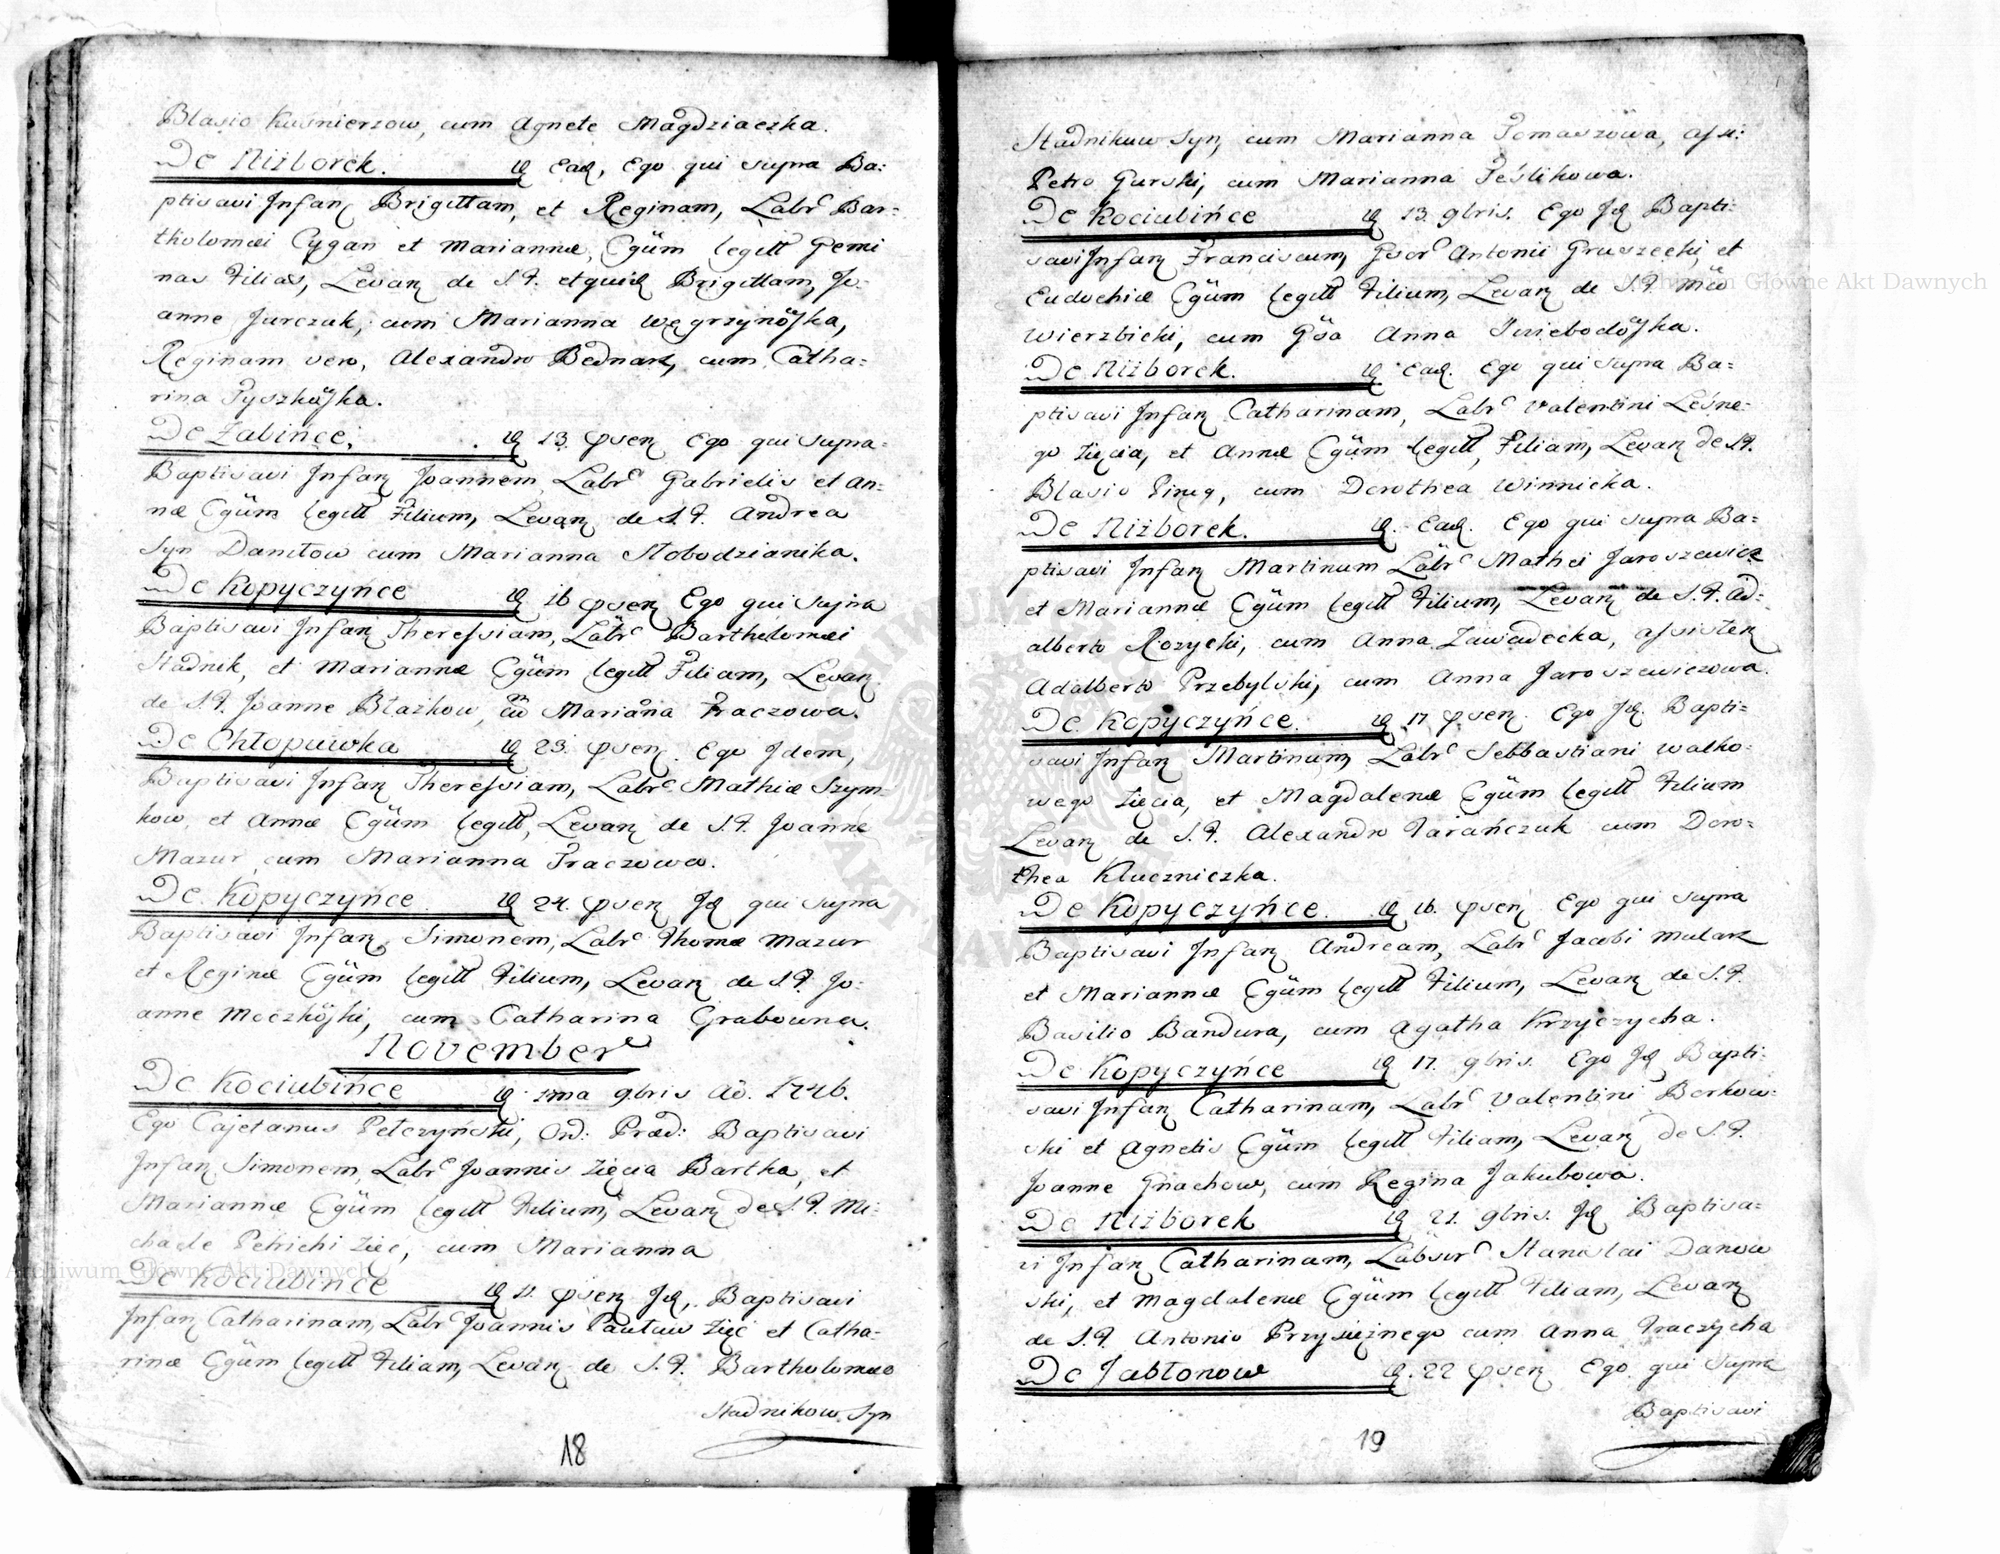 Blasio Kuśnierzow, cum Agnete Magdziaczka.
De Niżborek. D Ead, Ego qui supra Ba:
ptisavi Infan Brigittam, et Reginam, Labr Bar:
tholomæi Cygan et Mariannæ, Cgüm legitt Gemi
nas Filias, Levan de S.F. et quid Brigittam, Jo:
anne Jurczak, cum Marianna Węgrzynoska,
Reginam vero, Alexandro Bednarz, cum Catha:
rina Pyszkoska.
De Żabińce. D 13. Qusen Ego qui supra
Baptisavi Infan Joannem, Labr Gabrielis et An:
næ Cgüm legitt Filium, Levan de S.F. Andrea
Syn Daniłow cum Marianna Słobodzianika.
De Kopyczyńce D 16 Qusen Ego qui supra
Baptisavi Infan Theressiam, Labr Bartholomæi
Stadnik, et Mariannæ Cgüm legitt Filiam, Levan
de S.F. Joanne Błażkow, cū Mariana Traczowa.
De Chłopuwka D 23. Qusen Ego Idem,
Baptisavi Infan Theressiam, Labr Mathiæ Szym
kow, et Annæ Cgüm legitt, Levan de S.F. Joanne
Mazur, cum Marianna Traczowa.
De Kopyczyńce D 24. Qusen Id qui supra
Baptisavi Infan Simonem, Labr Thomæ Mazur
et Reginæ Cgüm legitt Filium, Levan de S.F. Jo:
anne Moczkoski, cum Catharina Grabowna.
November
De Kociubińce D 1ma 9bris AD. 1746.
Ego Cajetanus Pełczyński, Ord: Præd: Baptisavi
Infan Simonem, Labr Joannis Zięcia Bartka, et
Mariannæ Cgüm legitt Filium, Levan de S.F. Mi:
chaele Petrichi Zięć, cum Marianna
De Kociubińce D 11. Qusen Id, Baptisavi
Infan Catharinam, Labr Joannis Pauluw Zięć et Catha:
rinæ Cgüm legitt Filiam, Levan de S.F. Bartholomæo
Stadnikow Syn
18
Stadnikuw Syn, cum Marianna Tomaszowa, assi:
Petro Gurski, cum Marianna Teślikowa.
De Kociubińce D 13. 9bris. Ego Id Bapti:
savi Infan Franciscum, Gsor Antonii Gruszecki, et
Eudochiæ Cgüm legitt Filium, Levan de S.F. Mco
Wierzbicki, cum Gsa Anna
De Niżborek. D Ead. Ego qui supra Ba:
ptisavi Infan Catharinam, Labr Valentini Leśne:
go Zięcia, et Annæ Cgüm legitt, Filiam, Levan de S.F.
Blasio cum Dorothea Winnicka.
De Niżborek. D. Ead. Ego qui supra Ba:
ptisavi Infan Martinum Labr Mathei Jaroszewicz
et Mariannæ Cgüm legitt Filium, Levan de S.F. Ad:
alberto Rozycki, cum Anna Zawadecka, assisten
Adalberto Przebylski, cum Anna Jaroszewiczowa.
De Kopyczyńce. D 17 Qusen. Ego Id. Bapti:
savi Infan Martinum, Labr Sebbastiani Walko:
wego Zięcia, et Magdalenæ Cgüm legitt Filium
Levan de S.F. Alexandro Tarańczuk cum Doro:
thea Kluczniczka.
De Kopyczyńce. D 16. Qusen Ego qui supra
Baptisavi Infan Andream, Labr Jacobi Mularz
et Mariannæ Cgüm legitt Filium, Levan de S.F.
Basilio Bandura, cum Agatha Krzyczycha.
De Kopyczyńce D 17. 9bris. Ego Id Bapti:
savi Infan Catharinam, Labr Valentini Borkow:
ski et Agnetis Cgüm legitt Filiam, Levan de S.F.
Joanne Gnachow, cum Regina Jakubowa.
De Niżborek D 21. 9bris. Id Baptisa:
vi Infan Catharinam, Labsor Stanislai Danow
ski, et Magdalenæ Cgüm legitt Filiam, Levan
de S.F. Antonio Przysiężnego cum Anna Traczycha
De Jabłonow D. 22 Qusen Ego qui supra
Baptisavi
19
Archiwum Główne Akt Dawnych
Archiwum Główne Akt Dawnych